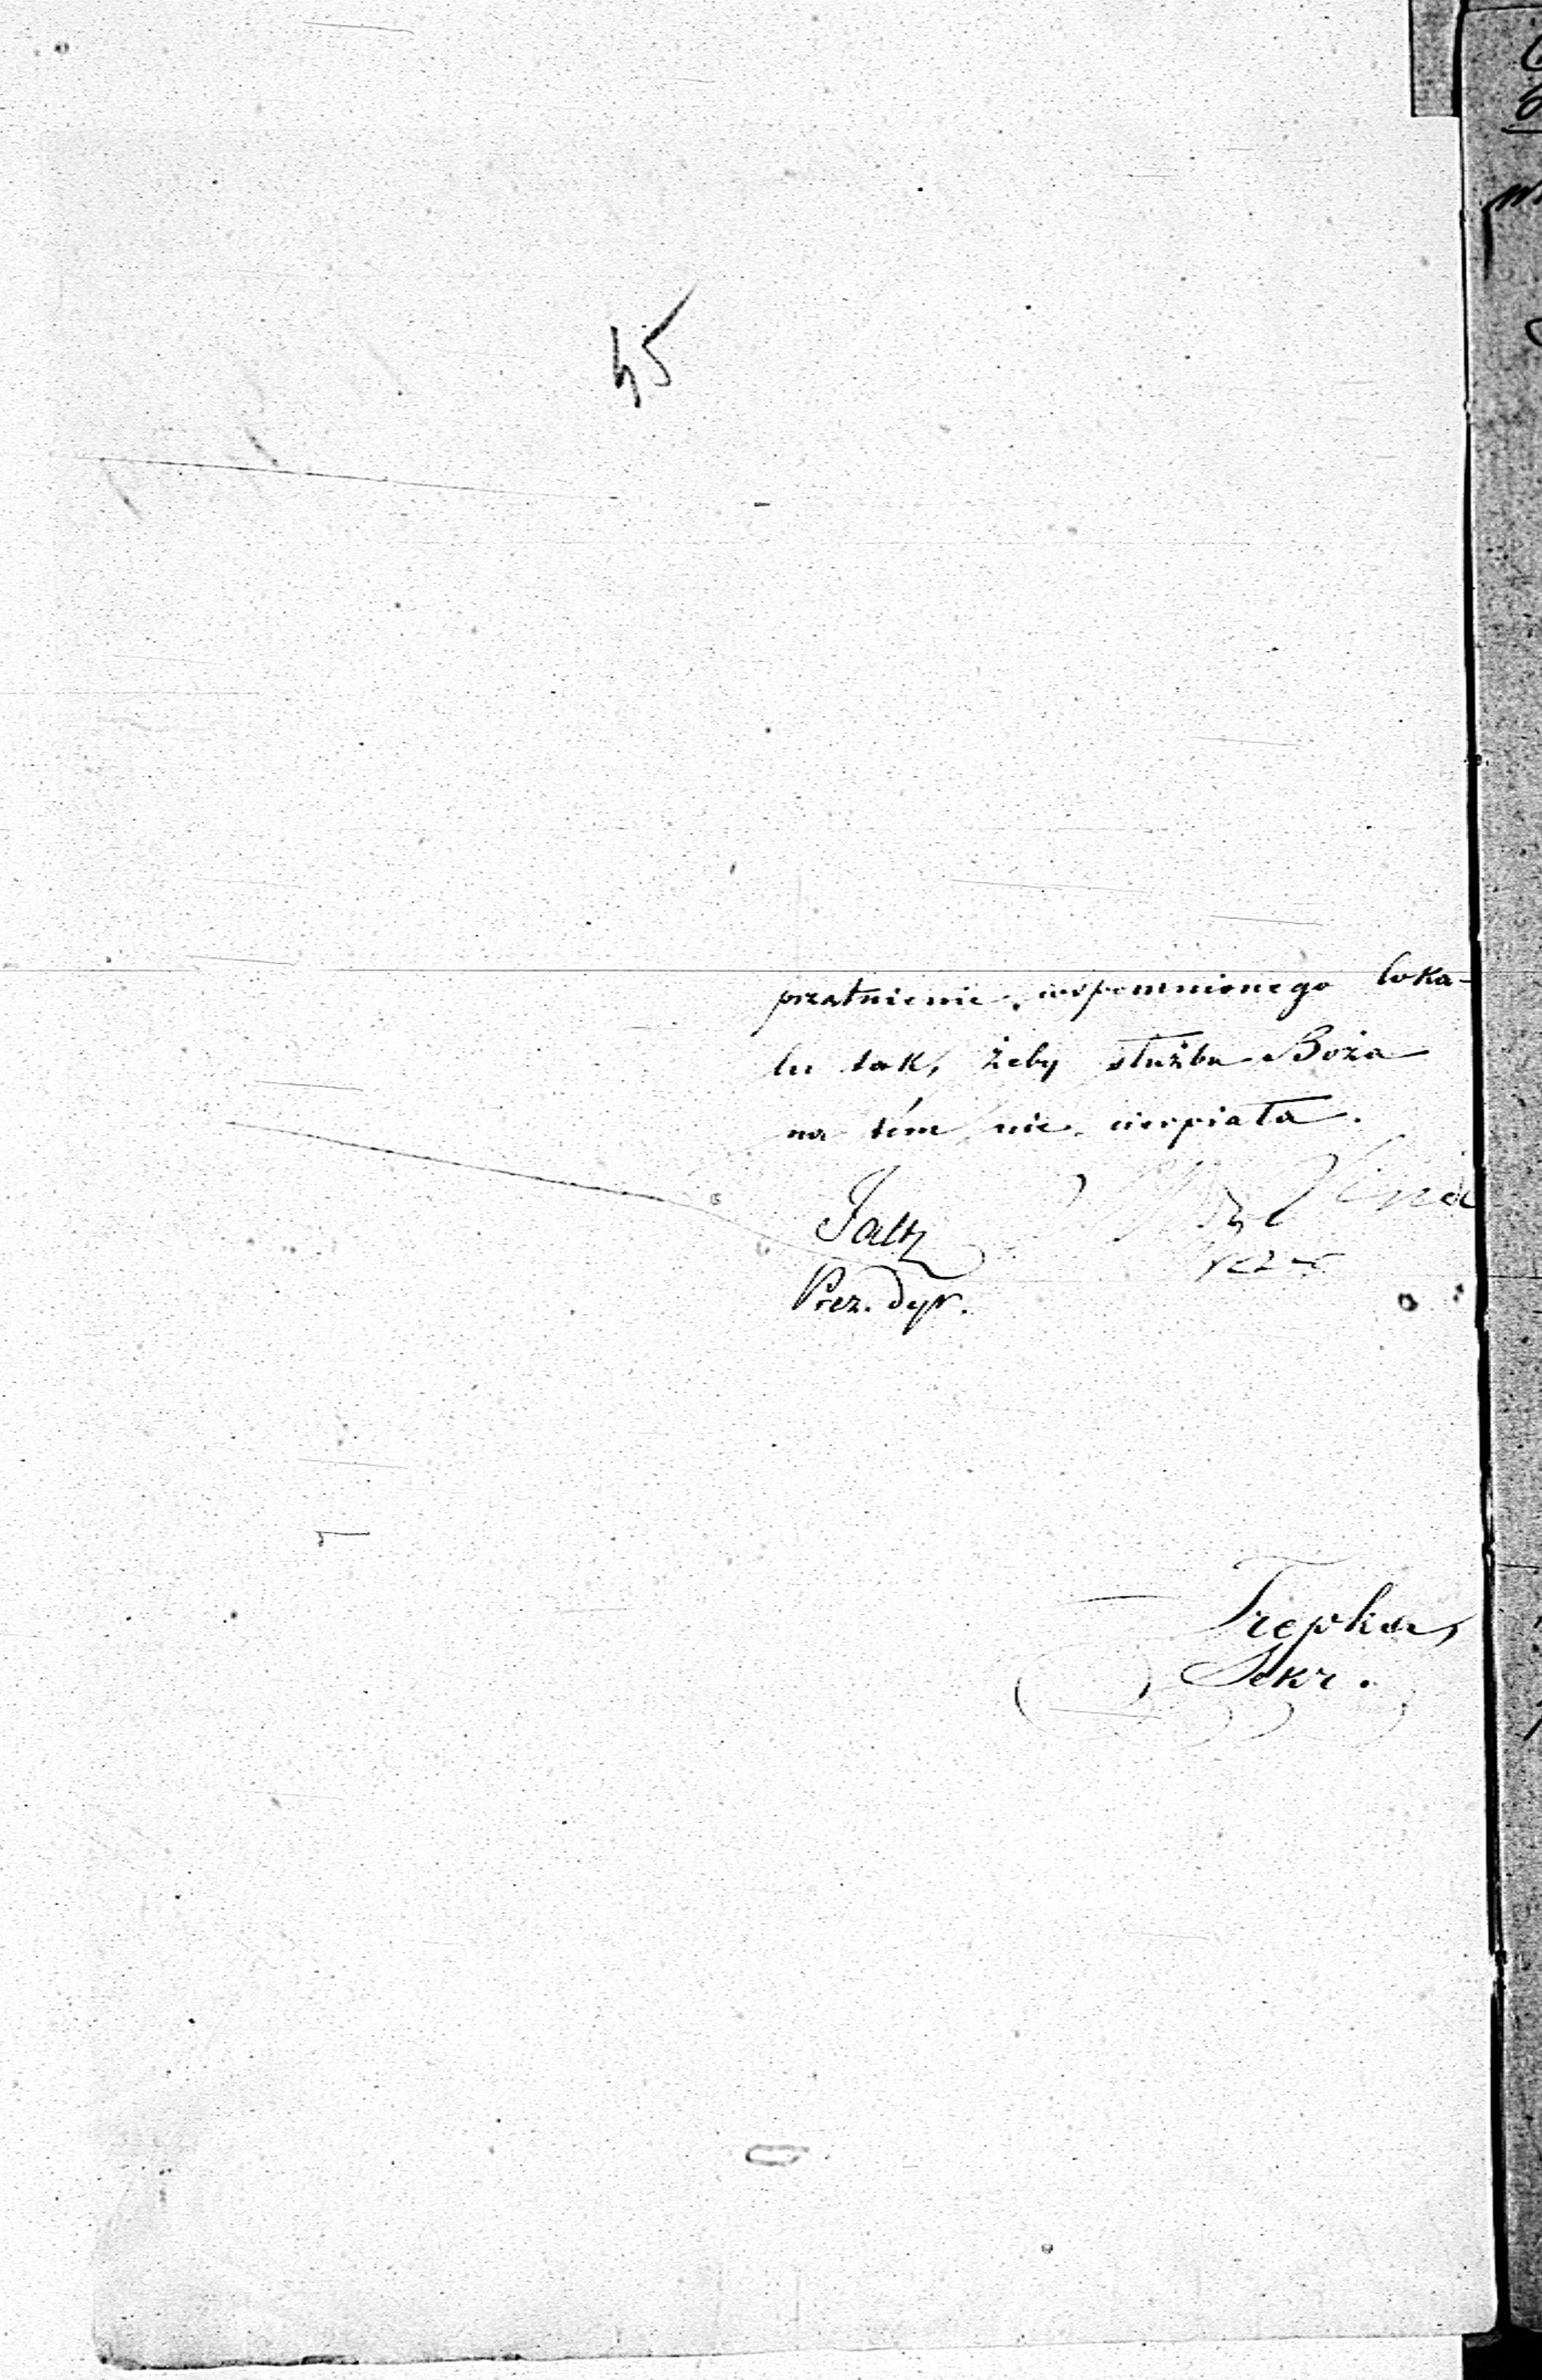 45
przątnienie wspomnionego loka-
lu tak, żeby służba Boża
na tém nie cierpiała.
Prez. Dyr.
Trepka,
Sekr.